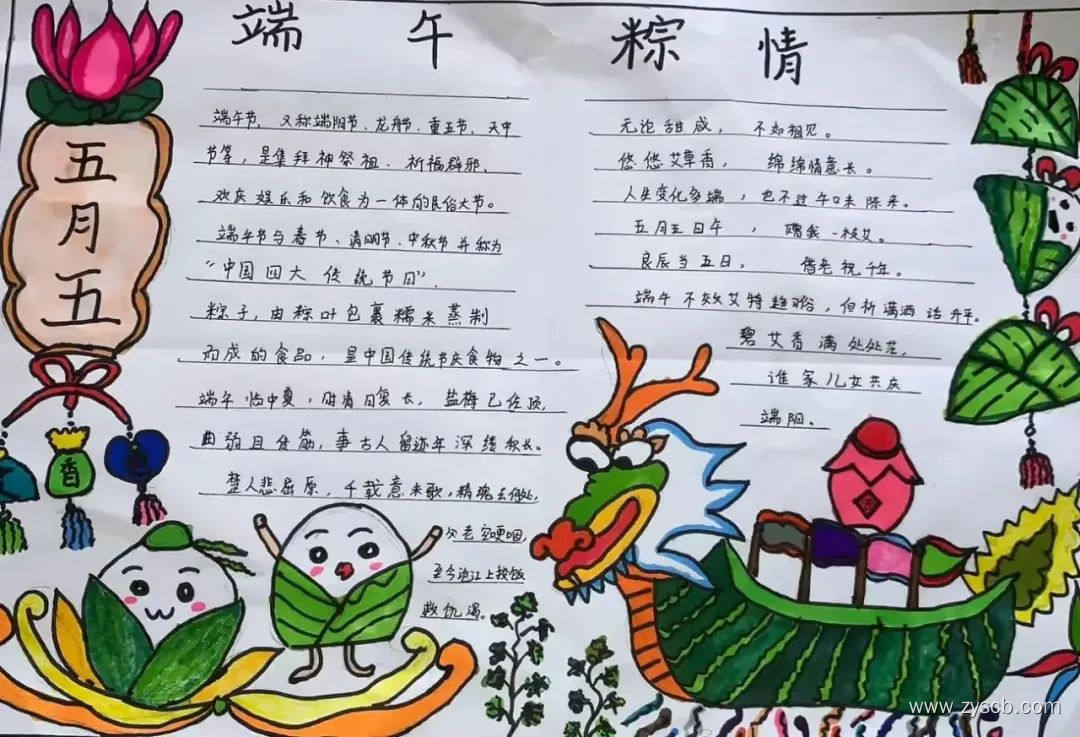 端午粽情
五月五
香
端午节，又称端阳节、龙舟节、重五节、天中
节等，是集拜神祭祖、祈福辟邪、
欢庆娱乐和饮食为一体的民俗大节。
端午节与春节、清明节、中秋节并称为
“中国四大传统节日”.
粽子，由粽叶包裹糯米蒸制
而成的食品，是中国传统节庆食物之一。
端午临中夏，时清日复长，盐梅已佐顶，
曲 且 事古人留迹年深缕积长。
楚人悲屈原，千载意未歌，精魂 何处，
父老空哽咽，
至今沧江上投饭
救饥渴。
无论甜咸，不如相见。
悠悠艾草香，绵绵情意长。
人生变化多端，也不过午口未陈来。
五月五日午，赠我一枝艾。
良辰当五日，偕老祝千年。
端午不效艾特趋俗，但祈满酒话升平。
碧艾香满处处
谁家儿女共庆
端阳。
酒
www.zyscb.com